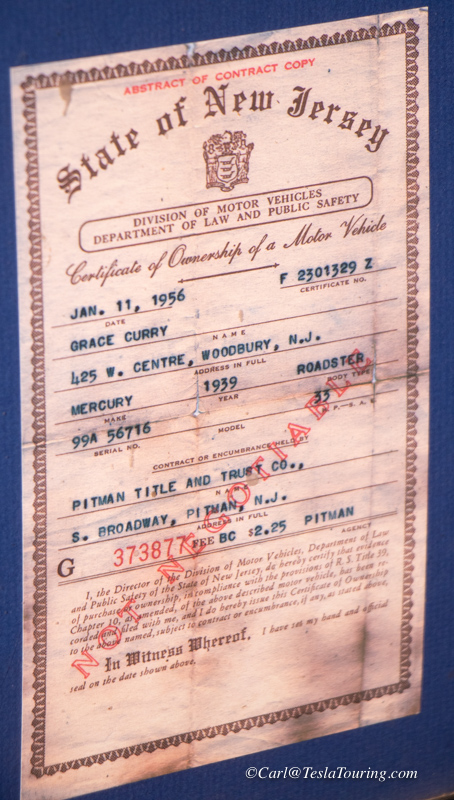 ABSTRACT OF CONTRACT COPY
State of New Jersey
DIVISION OF MOTOR VEHICLES
DEPARTMENT OF LAW AND PUBLIC SAFETY
Certificate of Ownership of a Motor Vehicle
JAN. 11, 1956 F 2301329 Z
DATE CERTIFICATE NO.
GRACE CURRY
NAME
425 W. CENTRE, WOODBURY, N.J.
ADDRESS IN FULL
MERCURY 1939 ROADSTER
MAKE YEAR BODY TYPE
99A 56716 33
SERIAL NO. MODEL H.P.—S.A.E.
CONTRACT OR ENCUMBRANCE HELD BY
PITMAN TITLE AND TRUST CO.,
NAME
S. BROADWAY, PITMAN, N.J.
ADDRESS IN FULL
G 373877 FEE BC $2.25 PITMAN
AGENCY
NOT NEGOTIABLE
I, the Director of the Division of Motor Vehicles, Department of Law
and Public Safety of the State of New Jersey, do hereby certify that evidence
of purchase or ownership, in compliance with the provisions of R. S. Title 39,
Chapter 10, as amended, of the above described motor vehicle, has been re-
corded and filed with me, and I do hereby issue this Certificate of Ownership
to the above named, subject to contract or encumbrance, if any, as stated above.
In Witness Whereof, I have set my hand and official
seal on the date shown above.
©Carl@TeslaTouring.com